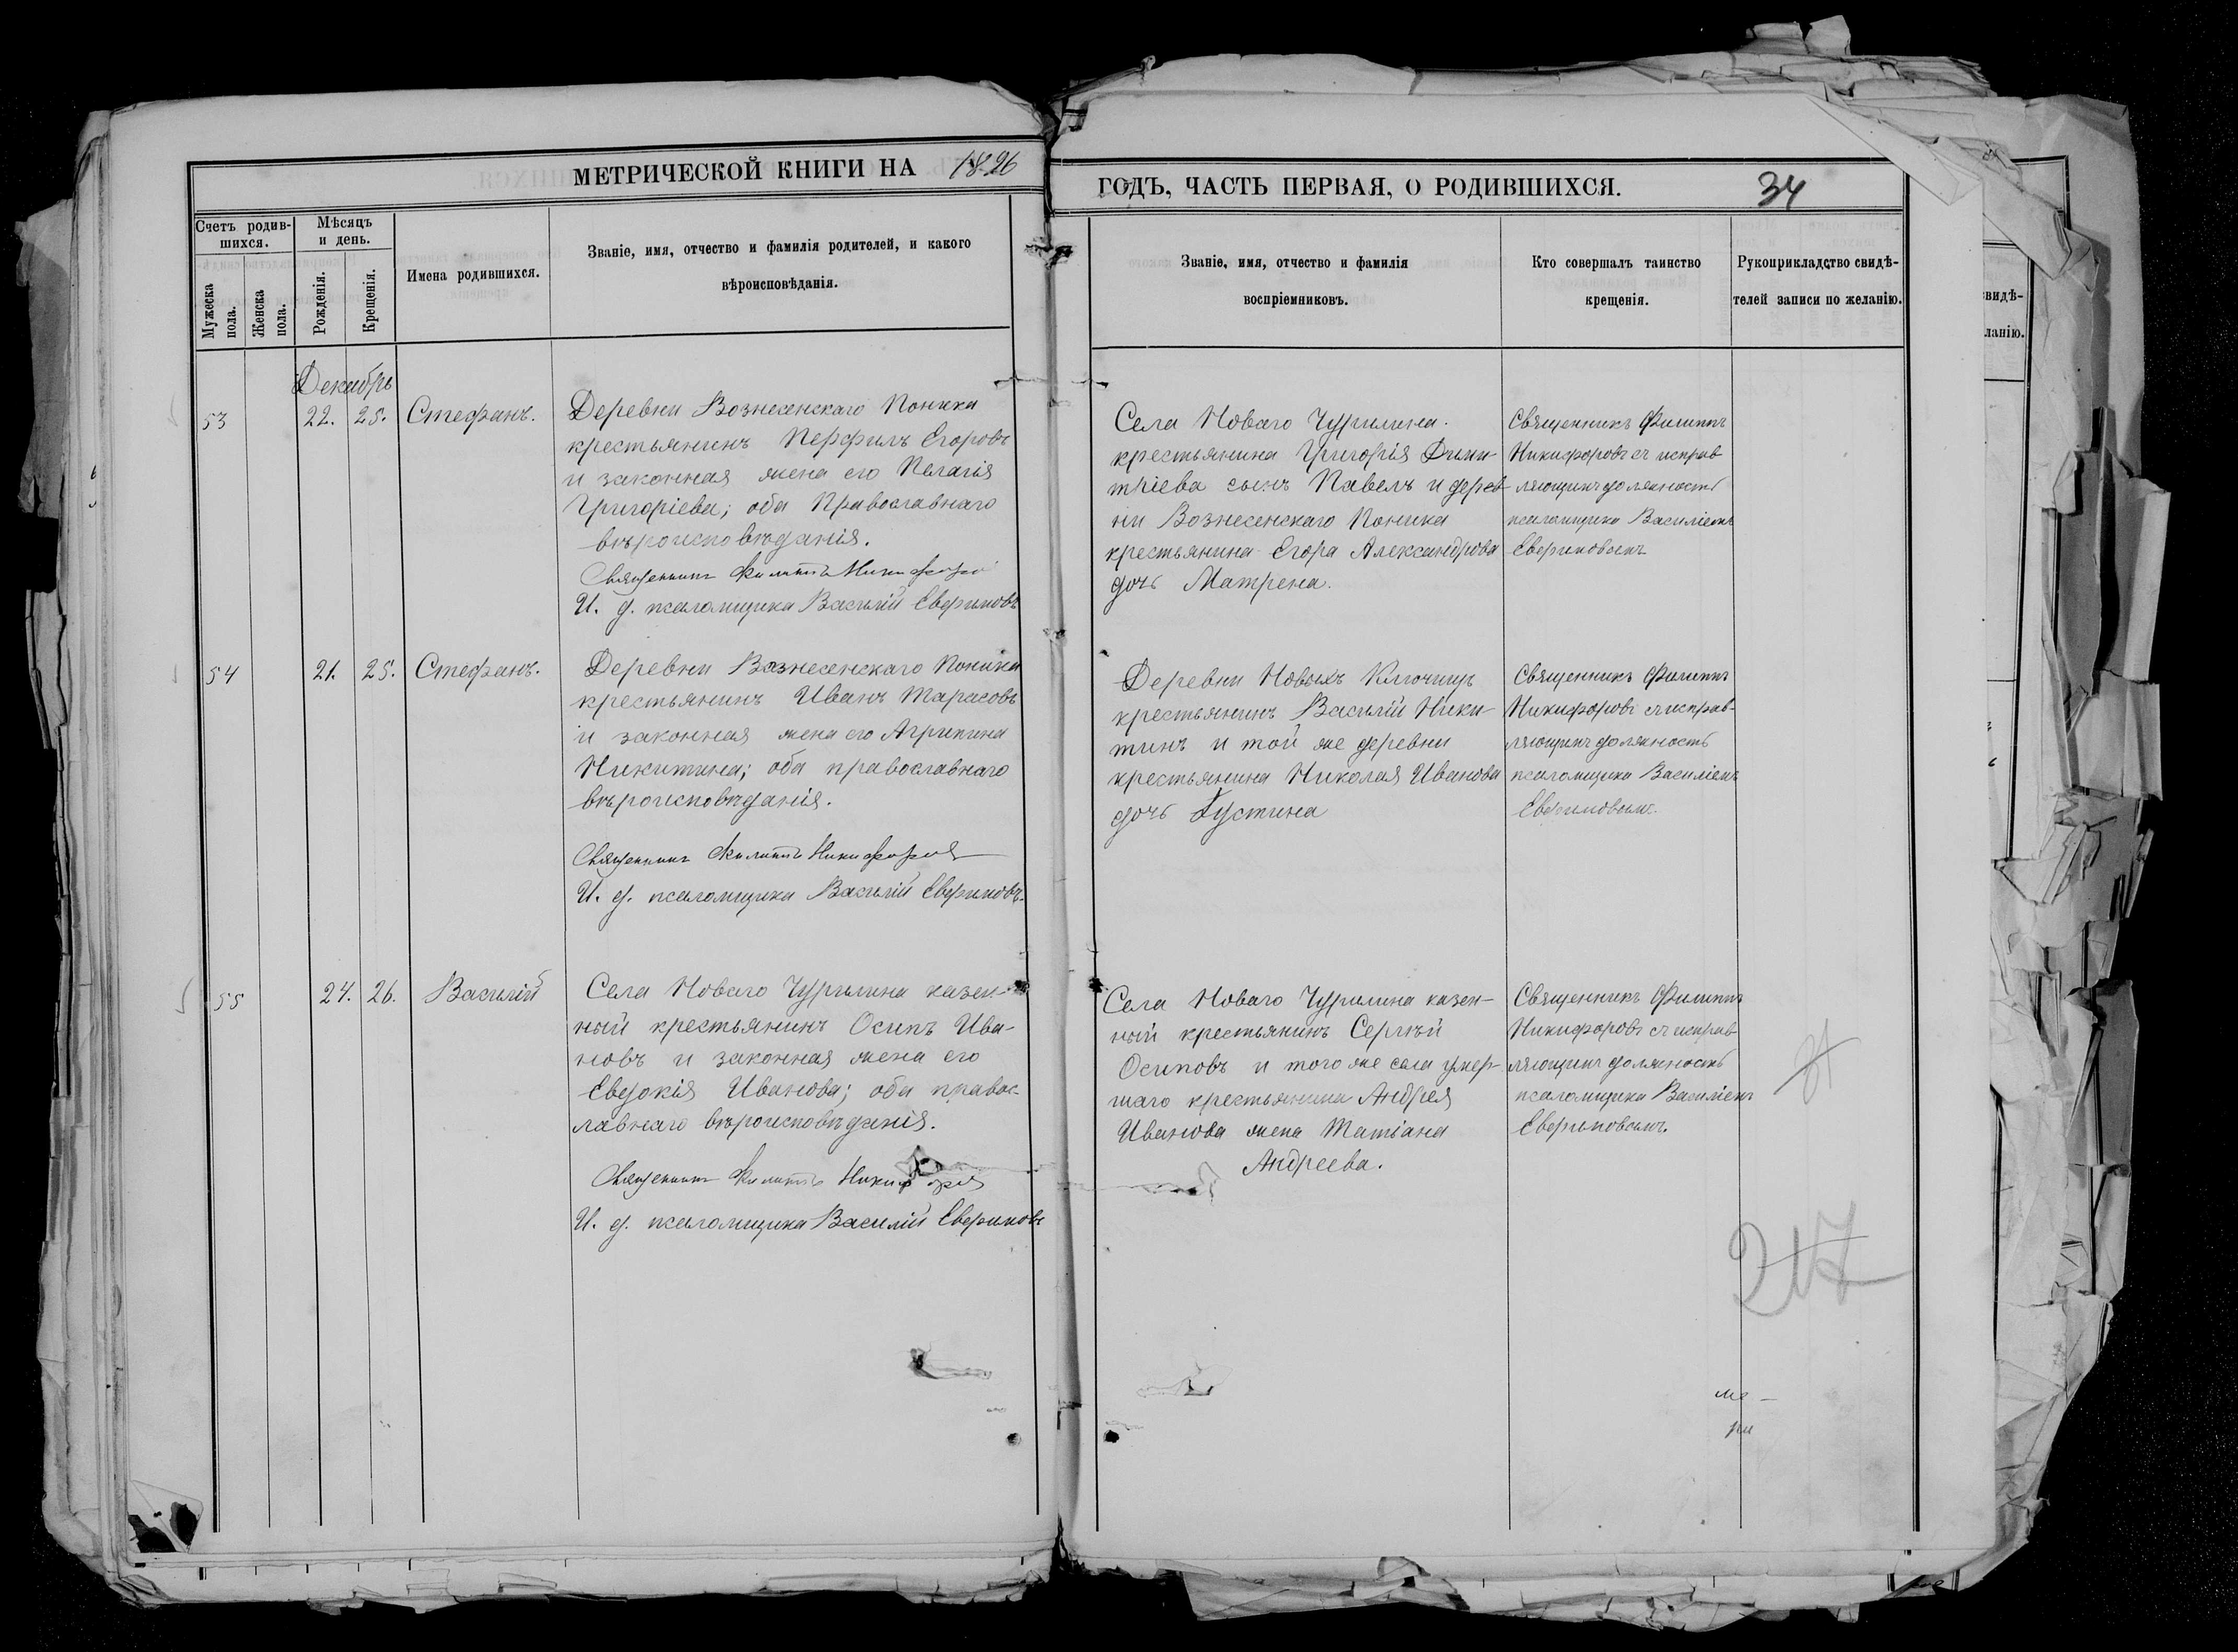 МЕТРИЧЕСКОЙ КНИГИ НА 1896
ГОДЪ, ЧАСТЬ ПЕРВАЯ, О РОДИВШИХСЯ.
34
Счетъ родив-
шихся.
Мужеска
пола.
Женска
пола.
Мѣсяцъ
и день.
Рожденія.
Крещенія.
Имена родившихся.
Званіе, имя, отчество и фамилія родителей, и какого
вѣроисповѣданія.
Званіе, имя, отчество и фамилія
воспріемниковъ.
Кто совершалъ таинство
крещенія.
Рукоприкладство свидѣ-
телей записи по желанію.
Декабрь
53
22. 25. Стефанъ.
Деревни Вознесенскаго Поника
крестьянинъ Перфилъ Егоровъ
и законная жена его Пелагія
Григоріева; оба Православнаго
вѣроисповѣданія.
Священникъ Филиппъ Никифоровъ
И. д. псаломщика Василій Евфимовъ
Села Новаго Чурилина
крестьянина Григорія Дими-
тріева сынъ Павелъ и дерев-
ни Вознесенскаго Поника
крестьянина Егора Александрова
дочь Матрена.
Священникъ Филиппъ
Никифоровъ съ исправ
ляющимъ должность
псаломщика Василіемъ
Евфимовымъ
54
21. 25. Стефанъ.
Деревни Вознесенскаго Поника
крестьянинъ Иванъ Тарасовъ
и законная жена его Агрипина
Никитина; оба православнаго
вѣроисповѣданія.
Священникъ Филиппъ Никифоровъ
И. д. псаломщика Василій Евфимовъ.
Деревни Новыхъ Ключищъ
крестьянинъ Василій Ники-
тинъ и той же деревни
крестьянина Николая Иванова
дочь Іустина
Священникъ Филиппъ
Никифоровъ съ исправ-
ляющимъ должность
псаломщика Василіемъ
Евфимовымъ.
55
24. 26. Василій
Села Новаго Чурилина казен-
ный крестьянинъ Осипъ Ива-
новъ и законная жена его
Евдокія Иванова; оба правос-
лавнаго вѣроисповѣданія.
Священникъ Филиппъ Никифоровъ
И. д. псаломщика Василій Евфимовъ
Села Новаго Чурилина казен-
ный крестьянинъ Сергѣй
Осиповъ и того же села умер-
шаго крестьянина Андрея
Иванова жена Татіана
Андреева.
Священникъ Филиппъ
Никифоровъ съ исправ-
ляющимъ должность
псаломщика Василіемъ
Евфимовымъ.
217
видѣ-
ланію.